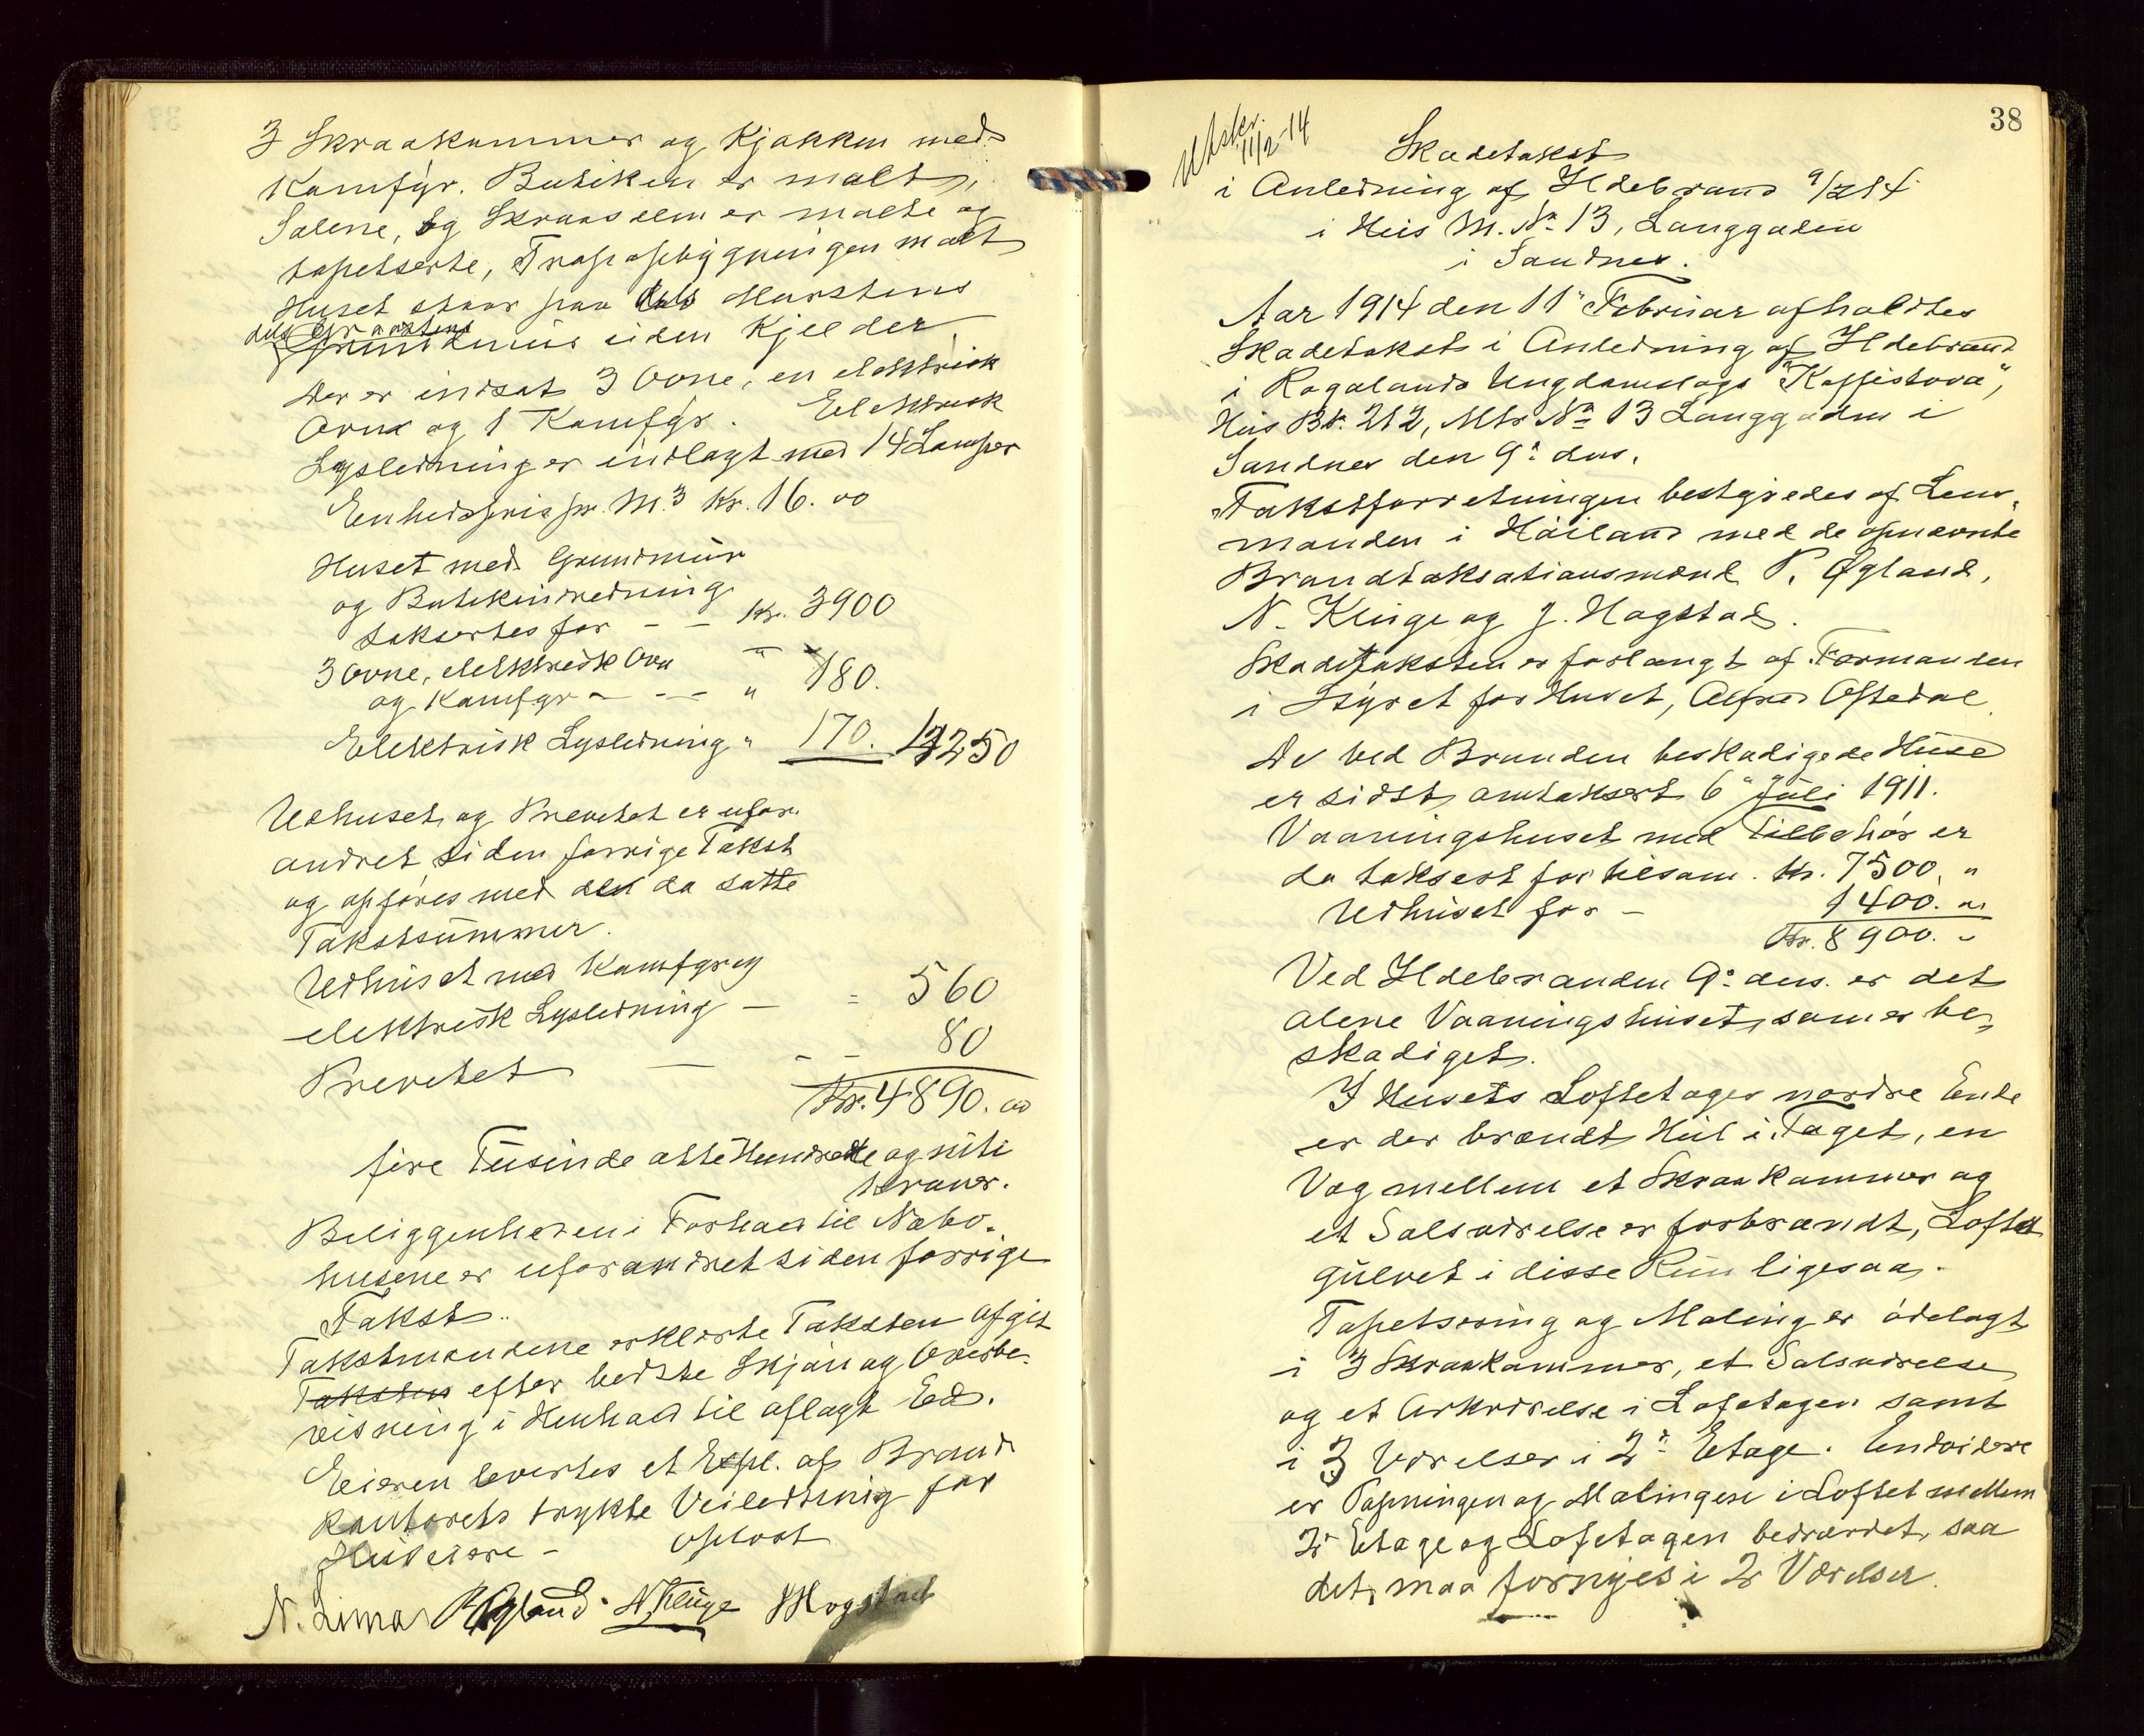 3 Skraakammer og Kjøkken med
Komfyr. Butiken er malt,
Salene, og Skraasalen er malte og
tapetserte, Trapopbygningen malt
Huset staar paa dels Murstens
dels Graastens
Grundmur uden Kjelder.
Der er indsat 3 Ovne, en elektrisk
Ovn og 1 Komfyr. Elektrisk
Lysledning er indlagt med 14 Lamper
Enhedspris pr. M.3 Kr. 16.00
Huset med Grundmur
og Butikindredning
takseres for - - Kr. 3900
3 Ovne, elektrisk Ovn
og Komfyr - - - " 180.
Elektrisk Lysledning " 170. 4250
Udhuset og Brevetet er ufor-
andret siden forrige Takst
og opføres med den da satte
Takstsummer.
Udhuset med Komfyr og
elektrisk Lysledning - = 560
Prevetet - - - 80
Kr. 4890.00
fire Tusinde otte Hundrede og niti
Kroner.
Beliggenheden i Forhold til Nabo-
husene er uforandret siden forrige
Takst.
Takstmændene erklærte Taksten afgit
Taksten efter bedste Skjøn og Overbe-
visning i Henhold til aflagt Ed.
Eieren levertes et Expl. af Brand
kontorets trykte Veiledning for
Huseiere - Oplæst
N. Lima P. Øgland N. Kluge J Hogstad
38
Utskr.
11/2-14
Skadetakst
i Anledning af Ildebrand 9/2 14
i Hus M. No 13, Langgaden
i Sandnes.
Aar 1914 den 11" Februar afholdtes
Skadetakst i Anledning af Ildebrand
i Rogalands Ungdomslags "Kaffistova",
Hus Br. 212, Mtr No 13 Langgaden i
Sandnes den 9: ds.
Takstforretningen bestyredes af Lens-
manden i Høiland med de opnævnte
Brandtaksationsmænd P. Øgland,
N. Kluge og J. Hogstad.
Skadetaksten er forlangt af Formanden
i Styret for Huset, Alfred Oftedal.
De ved Branden beskadigede Huse
er sidst omtaksert 6" Juli 1911.
Vaaningshuset med Tilbehør er
da taksert for tilsam. Kr. 7500. "
Udhuset for - 1400. "
Kr. 8900. -
Ved Ildebranden 9: ds. er det
alene Vaaningshuset, som er be-
skadiget.
I Husets Loftetages nordre Ende
er der brændt Hul i Taget, en
Væg mellem et Skraakammer og
et Salsværelse er forbrændt, Lofts
gulvet i disse Rum ligesaa.
Tapetsering og Maling er ødelagt
i 3 Skraakammer, et Salsværelse
og et Arkværelse i Loftetagen samt
i 3 Værelser i 2: Etage. Endvidere
er Papningen og Malingen i Loftet mellem
2: Etage og Loftetagen bedærvet, saa
det maa fornyes i 2 Værelser.